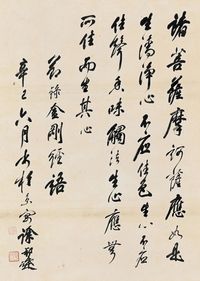 諸菩薩摩訶薩應如是
生清淨心不應住色生心不應
住聲香味觸法生心應無
所住而生其心
錄金剛經語
辛巳六月